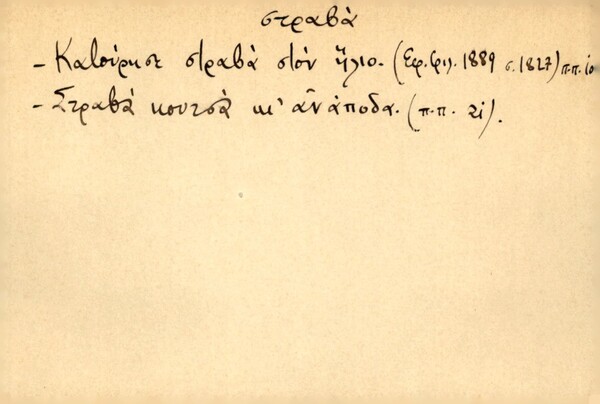 στραβὰ
- Κατούρησε στραβὰ στὸν ἥλιο. (Εφ. φιλ. 1889 σ. 1827) π.π. ιο
- Στραβὰ κουτσὰ κι' ἀνάποδα. (π.π. 2ἱ).